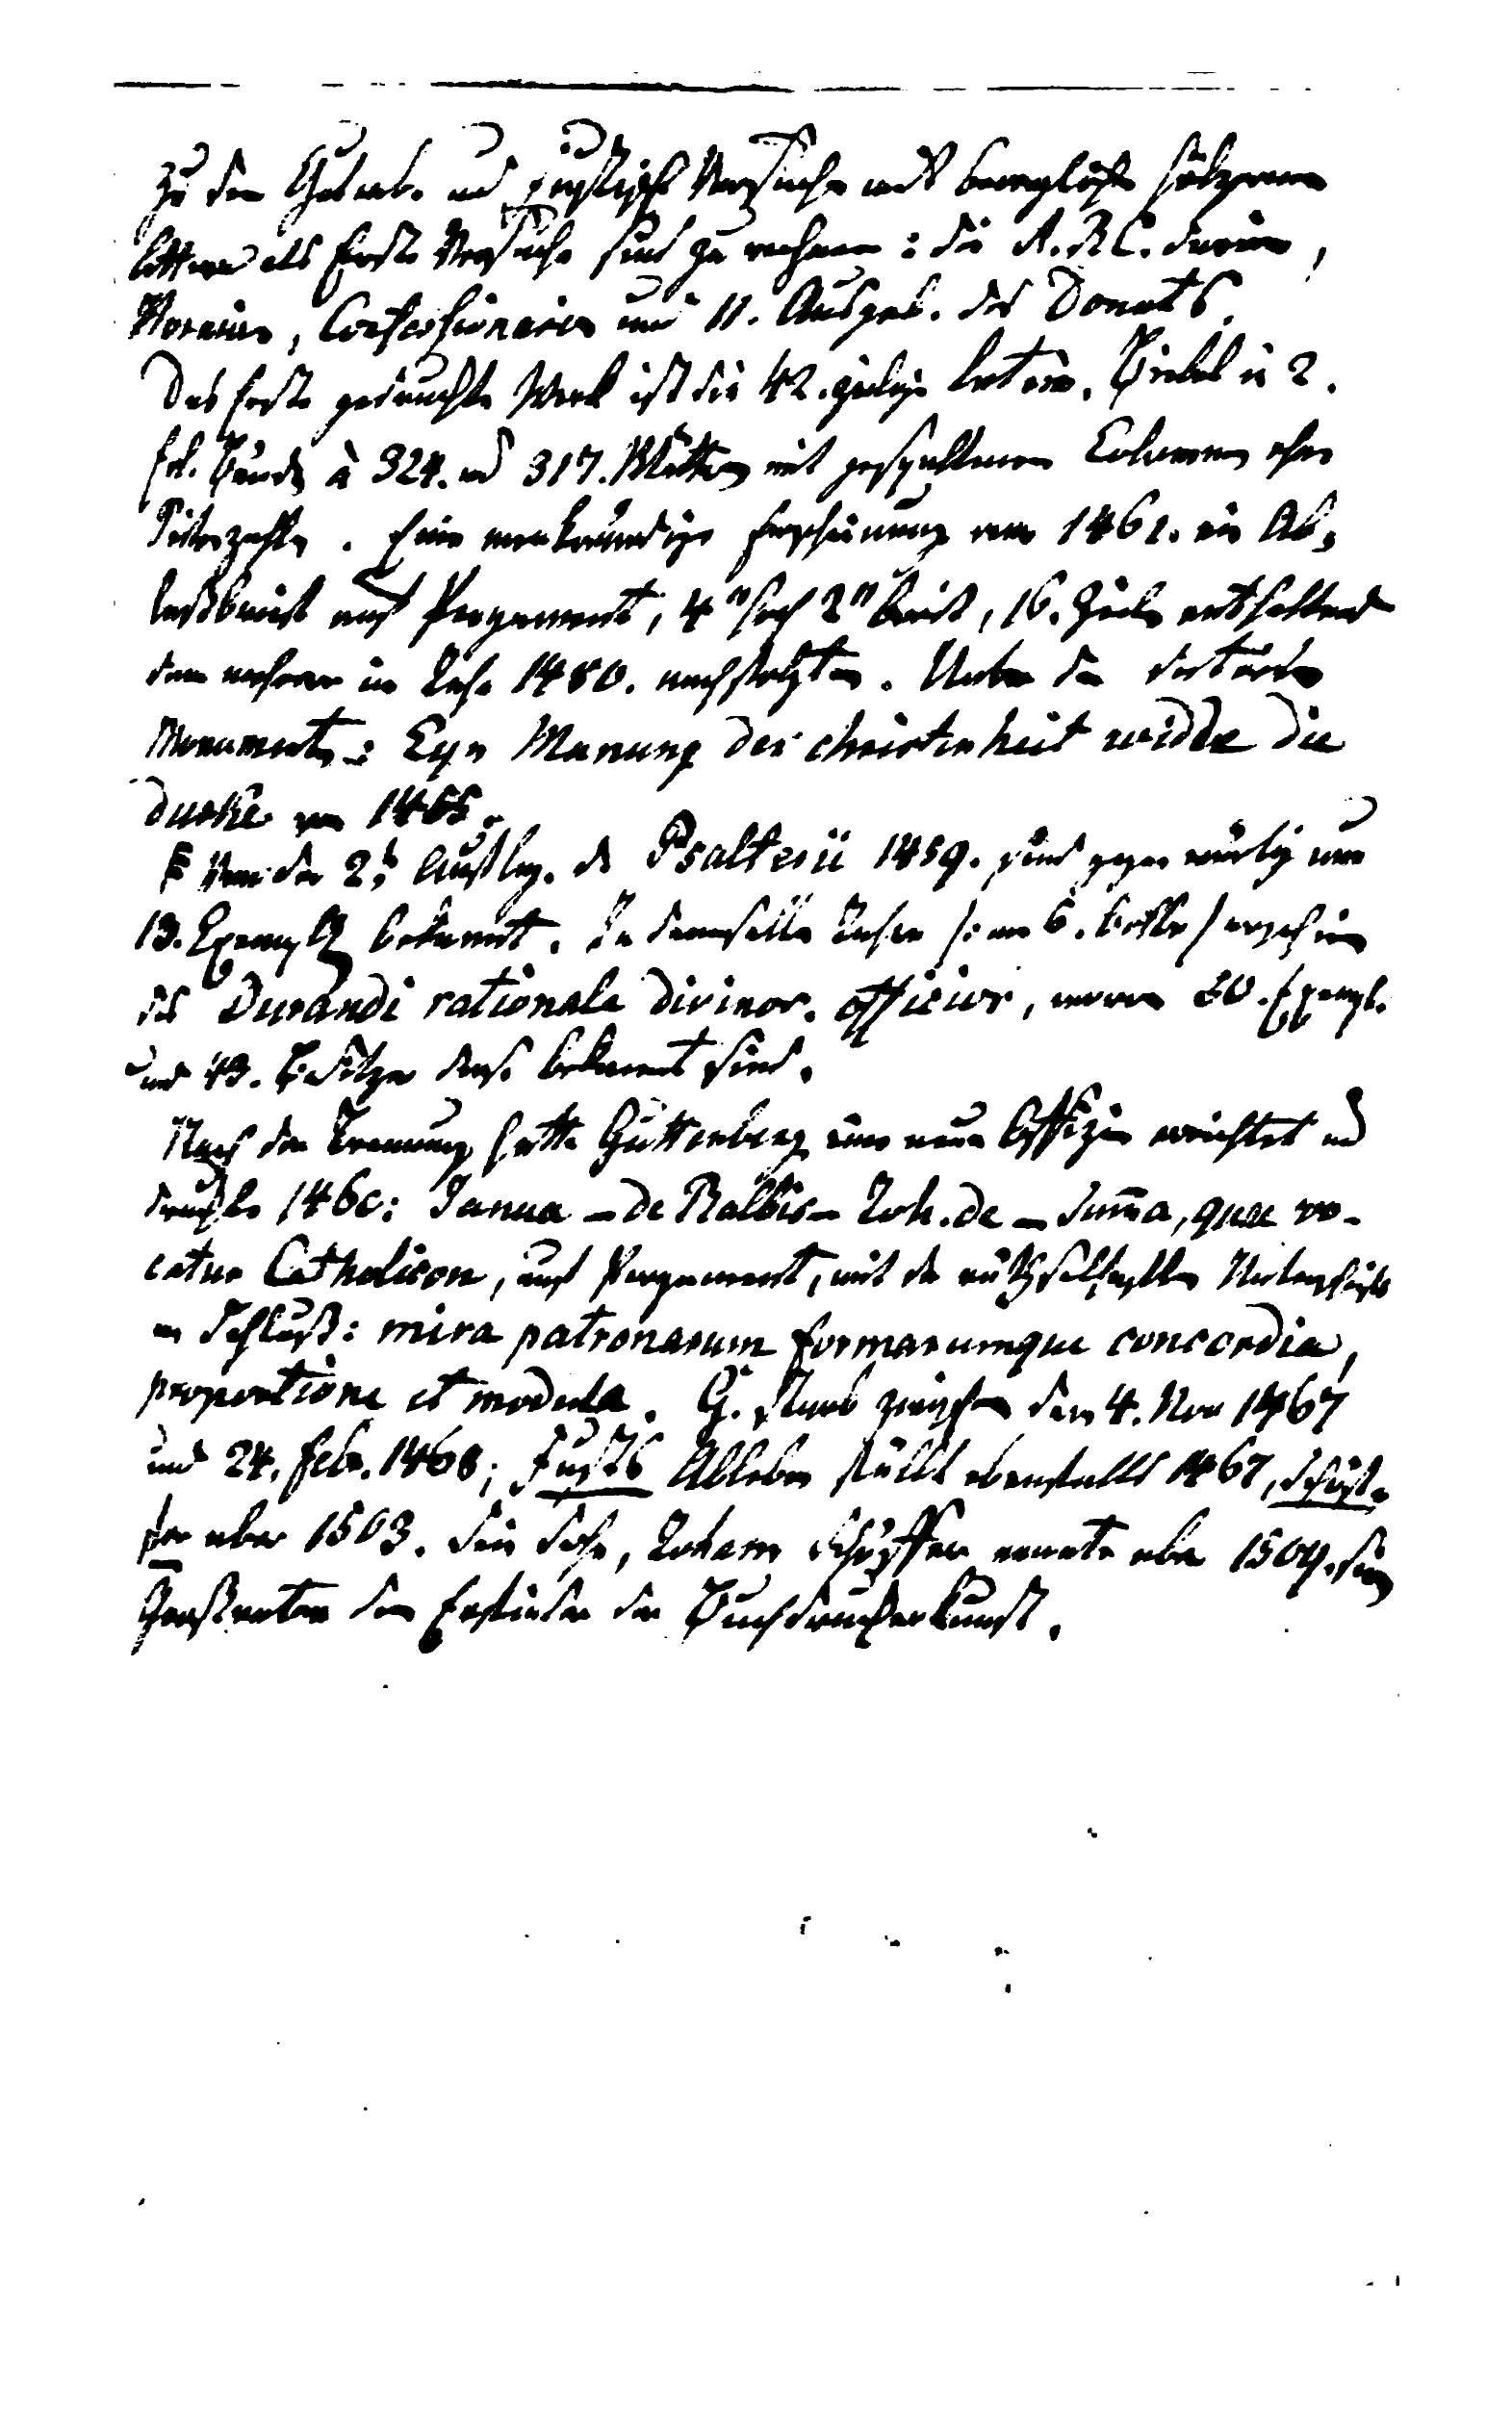 Zu den Gutenb. und Fustisch Versuche mit beweglich hölzernen
Lettern als erste Versuche sind zu rechnen: die A.B.C. darien,
Horarien, Confessionarien und 11. Ausgab. des Donats.
Das erste gedruckte Werk ist die 42. zeilige latein. Bibel in 2.
fol. Bände à 324. und 317. Blätter mit gespaltenen Columnen ohne
Seitenzahlen. Eine merkwürdige Erscheinung vom 1461. ein Ab,
laßbrief auf Pergament, 4" hoch 2" breit, 16. Zeilen enthaltend
dem mehrere im Jahr 1480. nachfolgten. Unter den datirten
Monumenten: Eyn Manung der christenheit widde die
durke von 1455.
Von der 2t Auflag. des Psalterii 1459. sind gegenwärtig nur
13. Exempl bekannt. In demselben Jahre /: am 6. 8ber / erschien
das Durandi rationale divinor. officior, wovon 50. Exempl.
und 43. Besitzer dess. bekannt sind.
Nach der Trennung hatte Guttenberg eine neue Offizin errichtet und
druckte 1460: Janua - de Balbis - Joh. de - Summa, quae vo-
catur Catholicon, auf Pergament, mit der räthselhaften Unterschrift
am Schluß: mira patronarum formarumque concordia,
proportione et modula. G. starb zwischen dem 4. Nov 1467
und 24. Febr. 1468; Fusts Ableben fällt ebenfalls 1467, Schöf-
fer aber 1503. Sein Sohn, Johann Schöffer nennte aber 1509. sein
Großvater den Erfinder der Buchdruckerkunst.